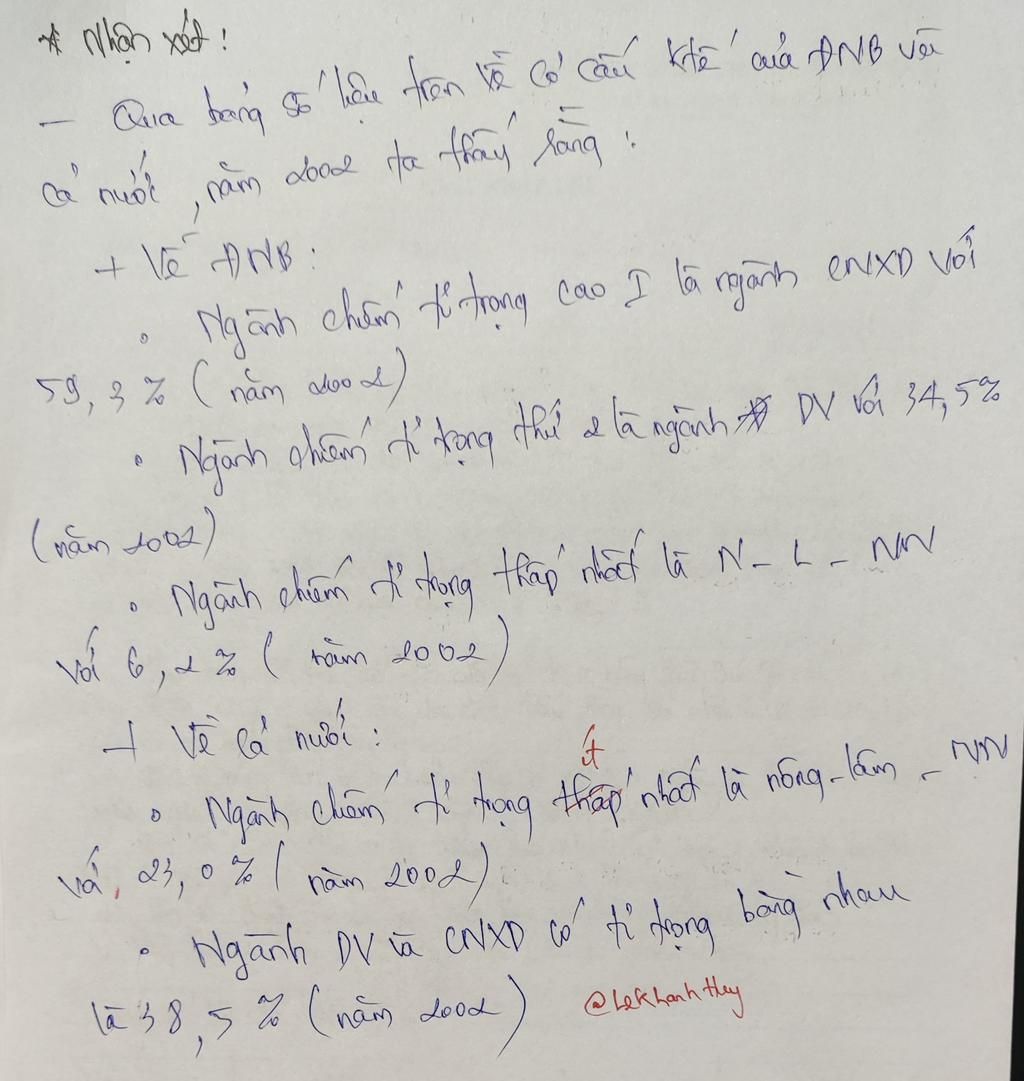 * Nhận xét :
- Qua bảng số liệu trên về cơ cấu ktế của ĐNB với
cả nước, năm 2002 ta thấy rằng :
+ Về ĐNB :
• Ngành chiếm tỉ trọng cao I là ngành CNXD với
59,3% (năm 2002)
• Ngành chiếm tỉ trọng thứ 2 là ngành DV với 34,5%
(năm 2002)
• Ngành chiếm tỉ trọng thấp nhất là N - L - NN
với 6,2% (năm 2002)
+ Về cả nước :
ít
• Ngành chiếm tỉ trọng thấp nhất là nông - lâm - NN
với, 23,0% (năm 2002)
• Ngành DV và CNXD có tỉ trọng bằng nhau
là 38,5% (năm 2002)
@lekhanhthuy